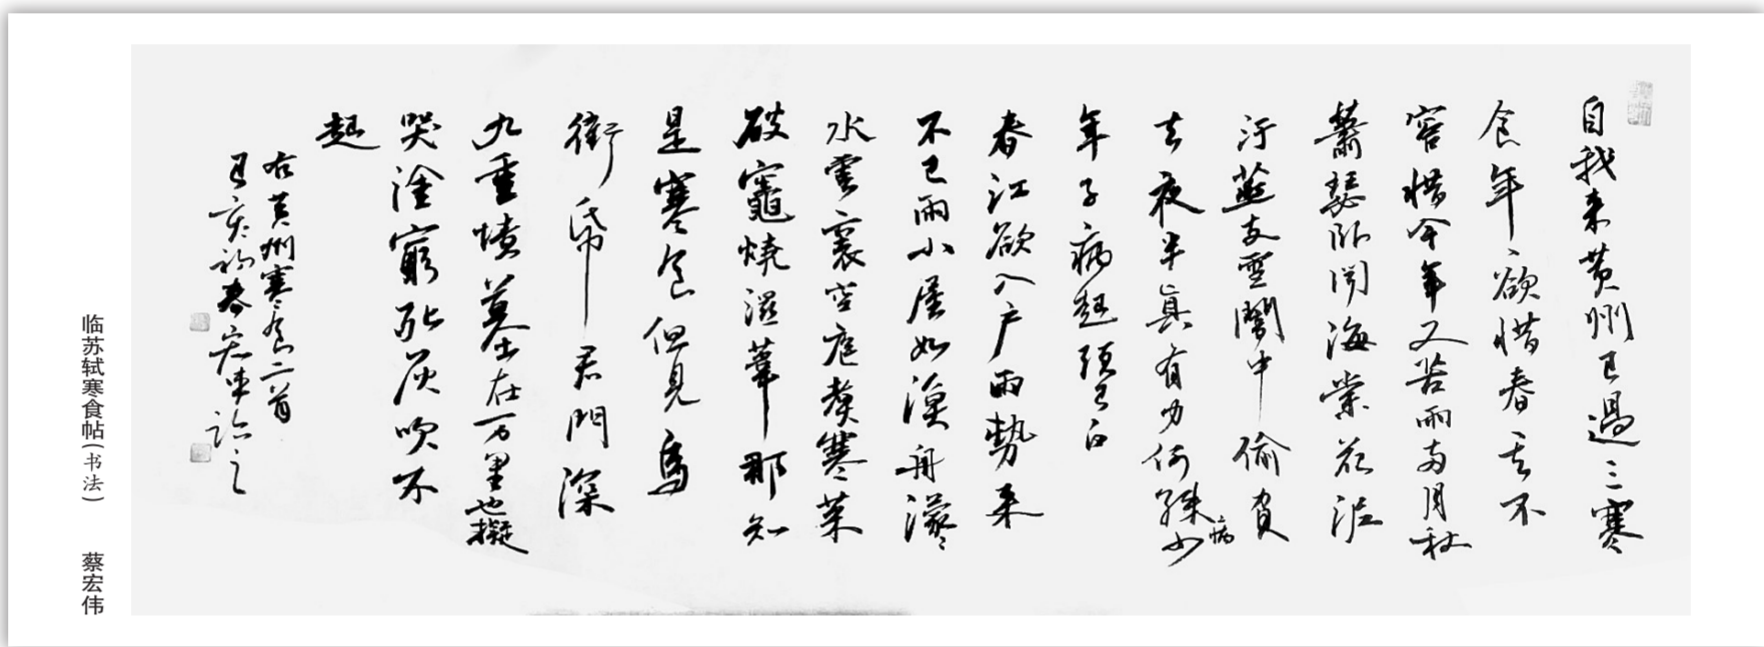 自我来黄州已過三寒
食年〻欲惜春春去不
容惜今年又苦雨两月秋
蕭瑟卧聞海棠花泥
汙燕支雪闇中偷負
去夜半真有力何殊少
年子病起頭已白
病
春江欲入户雨勢来
不已雨小屋如漁舟濛〻
水雲裏空庖煮寒菜
破竈燒濕葦那知
是寒食但見烏
銜帋君門深
九重墳墓在万里也擬
哭塗窮死灰吹不
起
右黄州寒食二首
己亥初春宏伟临之
临苏轼寒食帖(书法)
蔡宏伟